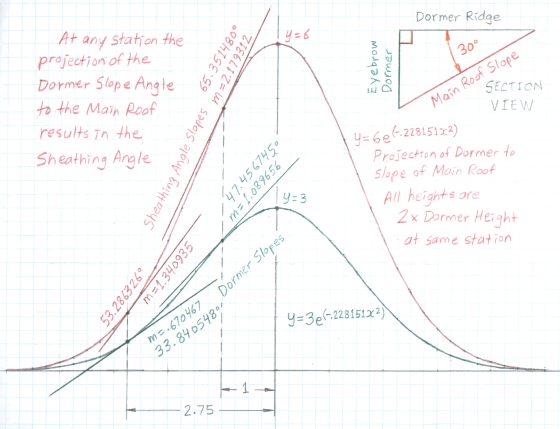 At any station the
projection of the
Dormer Slope Angle
to the Main Roof
results in the
Sheathing Angle
Dormer Ridge
Eyebrow
Dormer
30°
Main Roof Slope
SECTION
VIEW
y=6
65.351480°
m=2.179312
Sheathing Angle Slopes
y=6e^(-.228151x²)
Projection of Dormer to
slope of Main Roof
All heights are
2x Dormer Height
at same station
47.456745°
m=1.089656
y=3
Dormer Slopes
53.286326°
m=1.340935
m=.670467
33.840548°
y=3e^(-.228151x²)
1
2.75